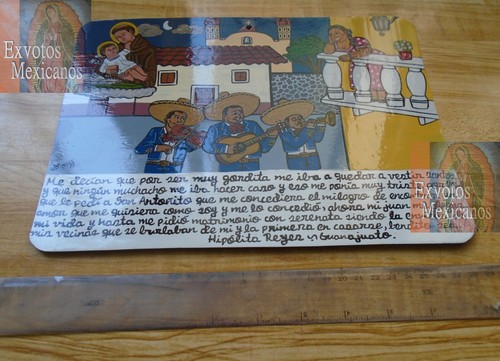 Exvotos
Mexicanos
Me decian que por ser muy gordita me iba a quedar a vestir santos
y que ningún muchacho me iba hacer caso y eso me ponia muy triste
que le pedi a San Antoñito que me concediera el milagro de
amor que me quisiera como soy y me lo concedió, ahora mi Juan
mi vida y hasta me pidió matrimonio con serenata siendo la
mis vecinas que se burlaban de mi y la primera en casarse,
Hipólita Reyes Guanajuato.
Exvotos
Mexicanos